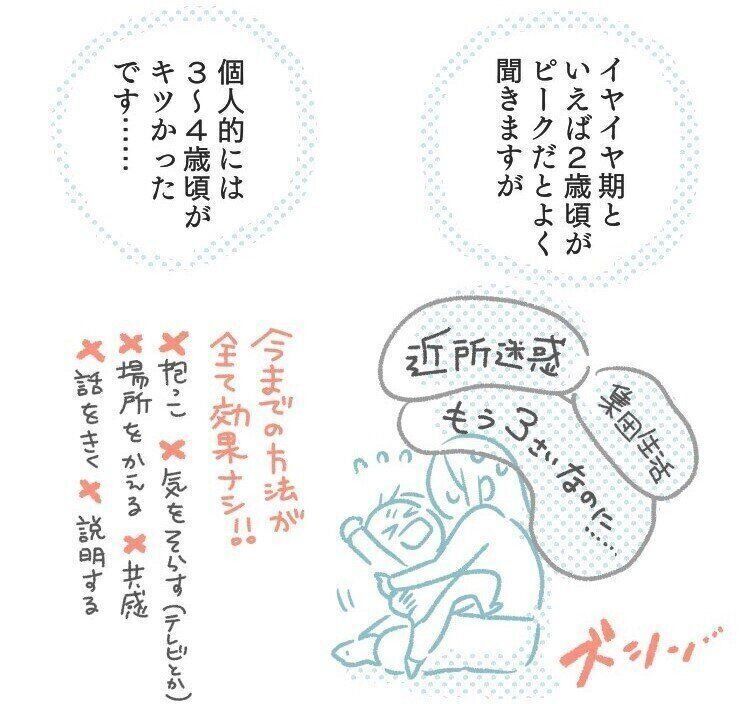 イヤイヤ期と
いえば２歳頃が
ピークだとよく
聞きますが
個人的には
３〜４歳頃が
キツかった
です……
近所迷惑
集団生活
もう3さいなのに……
ズーン…
今までの方法が
全て効果ナシ!!
✖抱っこ ✖気をそらす(テレビとか)
✖場所をかえる ✖共感
✖話をきく ✖説明する